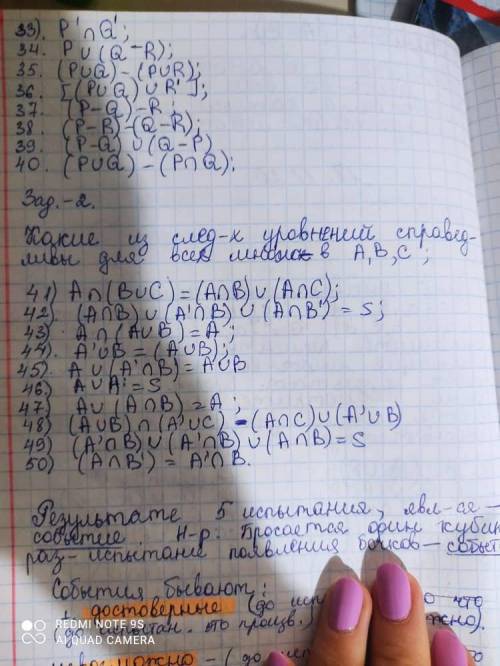 33). P'∩Q';
34. P∪(Q-R);
35. (P∪Q)-(P∪R);
36. [(P∪Q)∪R'];
37. (P-Q)-R;
38. (P-R)-(Q-R);
39. (P-Q)∪(Q-P)
40. (P∪Q)-(P∩Q).
Зад.-2.
Какие из след-х уровнений справед-
ливы для всех A,B,C;
41) A∩(B∪C)=(A∩B)∪(A∩C);
42. (A∩B)∪(A'∩B)∪(A∩B')=S;
43) A∩(A∪B)=A;
44. A'∪B=(A∪B);
45) A∪(A'∩B)=A∪B
46) A∪A'=S
47) A∪(A∩B)=A;
48) (A∪B)∩(A'∪C)-(A∩C)∪(A'∪B)
49) (A'∩B)∪(A'∩B)∪(A∩B)=S
50) (A∩B')=A'∩B.
Результате 5 испытания, явл-ся-
событие. Н-р: Бросается один кубик
раз-испытание появления -событ
События бывают:
достоверные (до исп что
(до испытан. это произв.)
(до
REDMI NOTE 9S
AI QUAD CAMERA